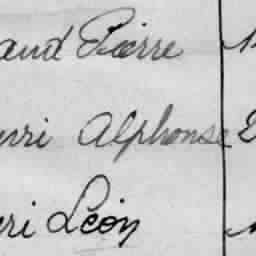 aud Pierre
nri Alphonse
eri Léon